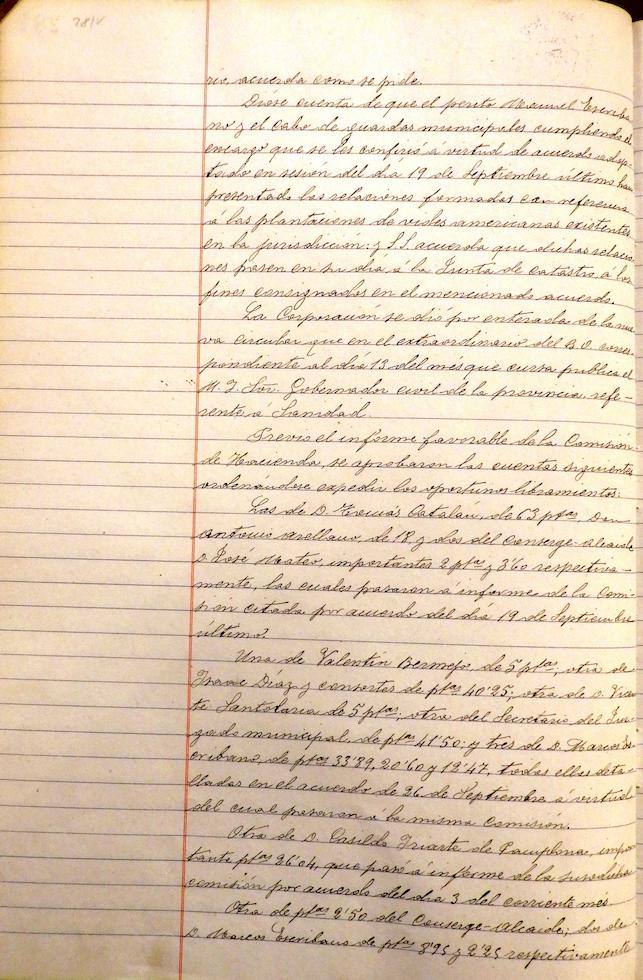 rio acuerda como se pide.
Dióse cuenta de que el perito Manuel Escriba
no y el cabo de guardas municipales cumpliendo el
encargo que se les confirió á virtud de acuerdo adop
tado en sesión del día 19 de Septiembre último han
presentado las relaciones formadas con referencia
á las plantaciones de vides americanas existentes
en la jurisdiccion: y S.S. acuerda que dichas relacio
nes pasen en su día á la Junta de catastro á los
fines consignados en el mencionado acuerdo.
La Corporación se dió por enterada de la nue
va circular que en el extraordinario del B.O. corres
pondiente al día 13 del mes que cursa publica el
M. I. Sor. Gobernador civil de la provincia refe-
rente á Sanidad.
Previo el informe favorable de la Comisión
de Hacienda, se aprobaron las cuentas siguientes
ordenándose expedir los oportunos libramientos:
Las de D. Tomás Catalan, de 63 ptas, Don
Antonio Arellano, de 18, y dos del Conserge-Alcaide
D. José Mateo, importantes 2 ptas y 3'60 respectiva-
mente, las cuales pasaron á informe de la Comi-
sión citada por acuerdo del día 19 de Septiembre
último.
Una de Valentin Bermejo de 5 ptas; otra de
Isaac Díaz y consortes de ptas 40'25; otra de D. Vicen
te Santolaria de 5 ptas; otra del Secretario del Juz
gado municipal, de ptas 41'50; y tres de D. Marcos Es
cribano, de ptas 33'89, 20'60 y 12'47, todas ellas deta-
lladas en el acuerdo de 26 de Septiembre á virtud
del cual pasaron á la misma Comisión.
Otra de D. Casildo Iriarte de Pamplona, impor
tante ptas 26'04, que pasó á informe de la susodicha
comisión por acuerdo del dia 3 del corriente mes.
Otra de ptas 2'50 del Conserge-Alcaide; dos de
D. Marcos Escribano de ptas 3'95 y 2'25 respectivamente